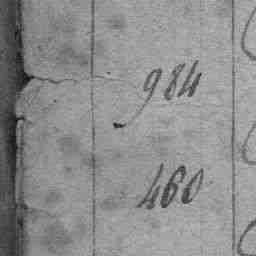 984
460